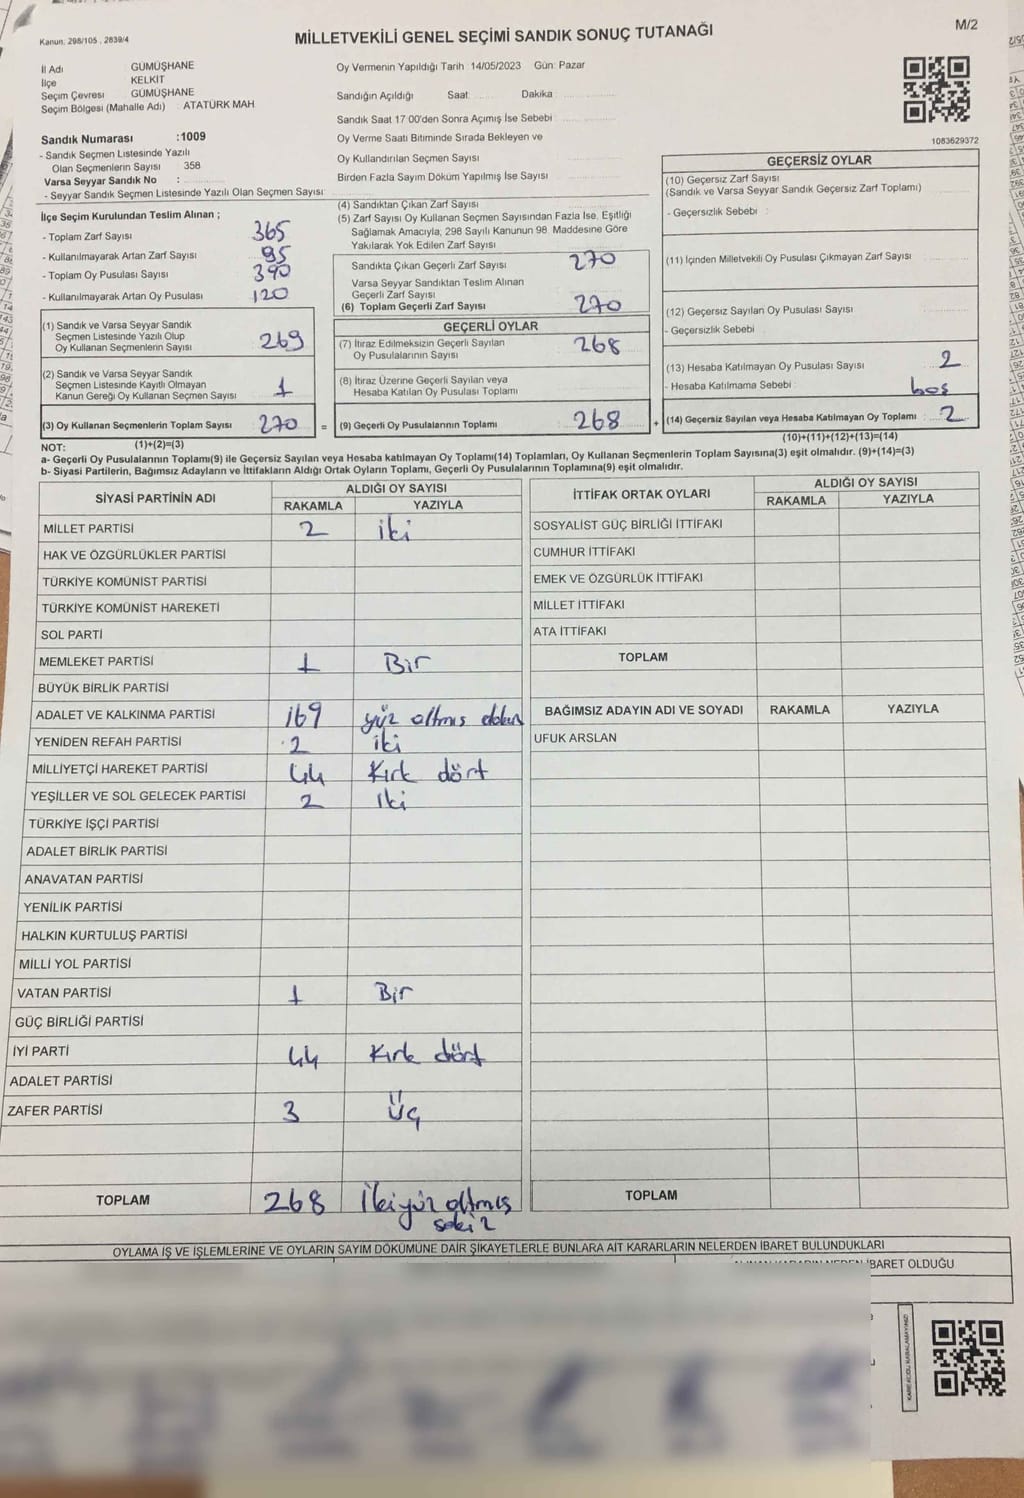 M/2
Kanun: 298/105 , 2839/4
MİLLETVEKİLİ GENEL SEÇİMİ SANDIK SONUÇ TUTANAĞI
İl Adı GÜMÜŞHANE
İlçe KELKİT
Seçim Çevresi GÜMÜŞHANE
Seçim Bölgesi (Mahalle Adı) : ATATÜRK MAH
Sandık Numarası :1009
- Sandık Seçmen Listesinde Yazılı
Olan Seçmenlerin Sayısı : 358
Varsa Seyyar Sandık No :
- Seyyar Sandık Seçmen Listesinde Yazılı Olan Seçmen Sayısı
Oy Vermenin Yapıldığı Tarih 14/05/2023 Gün: Pazar
Sandığın Açıldığı Saat Dakika
Sandık Saat 17 00'den Sonra Açımış İse Sebebi
Oy Verme Saati Bitiminde Sırada Bekleyen ve
Oy Kullandırılan Seçmen Sayısı
Birden Fazla Sayım Döküm Yapılmış İse Sayısı
1083629372
İlçe Seçim Kurulundan Teslim Alınan ;
- Toplam Zarf Sayısı 365
- Kullanılmayarak Artan Zarf Sayısı 95
- Toplam Oy Pusulası Sayısı 390
- Kullanılmayarak Artan Oy Pusulası 120
(1) Sandık ve Varsa Seyyar Sandık
Seçmen Listesinde Yazılı Olup
Oy Kullanan Seçmenlerin Sayısı 269
(2) Sandık ve Varsa Seyyar Sandık
Seçmen Listesinde Kayıtlı Olmayan
Kanun Gereği Oy Kullanan Seçmen Sayısı 1
(3) Oy Kullanan Seçmenlerin Toplam Sayısı 270
(1)+(2)=(3)
(4) Sandıktan Çıkan Zarf Sayısı
(5) Zarf Sayısı Oy Kullanan Seçmen Sayısından Fazla İse, Eşitliği
Sağlamak Amacıyla, 298 Sayılı Kanunun 98. Maddesine Göre
Yakılarak Yok Edilen Zarf Sayısı
Sandıkta Çıkan Geçerli Zarf Sayısı 270
Varsa Seyyar Sandıktan Teslim Alınan
Geçerli Zarf Sayısı
(6) Toplam Geçerli Zarf Sayısı 270
GEÇERLİ OYLAR
(7) İtiraz Edilmeksizin Geçerli Sayılan
Oy Pusulalarının Sayısı 268
(8) İtiraz Üzerine Geçerli Sayılan veya
Hesaba Katılan Oy Pusulası Toplamı
= (9) Geçerli Oy Pusulalarının Toplamı 268 +
GEÇERSİZ OYLAR
(10) Geçersiz Zarf Sayısı
(Sandık ve Varsa Seyyar Sandık Geçersiz Zarf Toplamı)
- Geçersizlik Sebebi :
(11) İçinden Milletvekili Oy Pusulası Çıkmayan Zarf Sayısı
(12) Geçersiz Sayılan Oy Pusulası Sayısı
- Geçersizlik Sebebi
(13) Hesaba Katılmayan Oy Pusulası Sayısı 2
- Hesaba Katılmama Sebebi : boş
(14) Geçersiz Sayılan veya Hesaba Katılmayan Oy Toplamı 2
(10)+(11)+(12)+(13)=(14)
NOT:
a- Geçerli Oy Pusulalarının Toplamı(9) ile Geçersiz Sayılan veya Hesaba katılmayan Oy Toplamı(14) Toplamları, Oy Kullanan Seçmenlerin Toplam Sayısına(3) eşit olmalıdır. (9)+(14)=(3)
b- Siyasi Partilerin, Bağımsız Adayların ve İttifakların Aldığı Ortak Oyların Toplamı, Geçerli Oy Pusulalarının Toplamına(9) eşit olmalıdır.
SİYASİ PARTİNİN ADI ALDIĞI OY SAYISI
RAKAMLA YAZIYLA
MİLLET PARTİSİ 2 iki
HAK VE ÖZGÜRLÜKLER PARTİSİ
TÜRKİYE KOMÜNİST PARTİSİ
TÜRKİYE KOMÜNİST HAREKETİ
SOL PARTİ
MEMLEKET PARTİSİ 1 Bir
BÜYÜK BİRLİK PARTİSİ
ADALET VE KALKINMA PARTİSİ 169 yüz altmış dokuz
YENİDEN REFAH PARTİSİ 2 iki
MİLLİYETÇİ HAREKET PARTİSİ 44 Kırk dört
YEŞİLLER VE SOL GELECEK PARTİSİ 2 iki
TÜRKİYE İŞÇİ PARTİSİ
ADALET BİRLİK PARTİSİ
ANAVATAN PARTİSİ
YENİLİK PARTİSİ
HALKIN KURTULUŞ PARTİSİ
MİLLİ YOL PARTİSİ
VATAN PARTİSİ 1 Bir
GÜÇ BİRLİĞİ PARTİSİ
İYİ PARTİ 44 Kırk dört
ADALET PARTİSİ
ZAFER PARTİSİ 3 Üç
TOPLAM 268 İkiyüz altmış
sekiz
İTTİFAK ORTAK OYLARI ALDIĞI OY SAYISI
RAKAMLA YAZIYLA
SOSYALİST GÜÇ BİRLİĞİ İTTİFAKI
CUMHUR İTTİFAKI
EMEK VE ÖZGÜRLÜK İTTİFAKI
MİLLET İTTİFAKI
ATA İTTİFAKI
TOPLAM
BAĞIMSIZ ADAYIN ADI VE SOYADI RAKAMLA YAZIYLA
UFUK ARSLAN
TOPLAM
OYLAMA İŞ VE İŞLEMLERİNE VE OYLARIN SAYIM DÖKÜMÜNE DAİR ŞİKAYETLERLE BUNLARA AİT KARARLARIN NELERDEN İBARET BULUNDUKLARI
İBARET OLDUĞU
KARE KODU KARALAMAYINIZ!